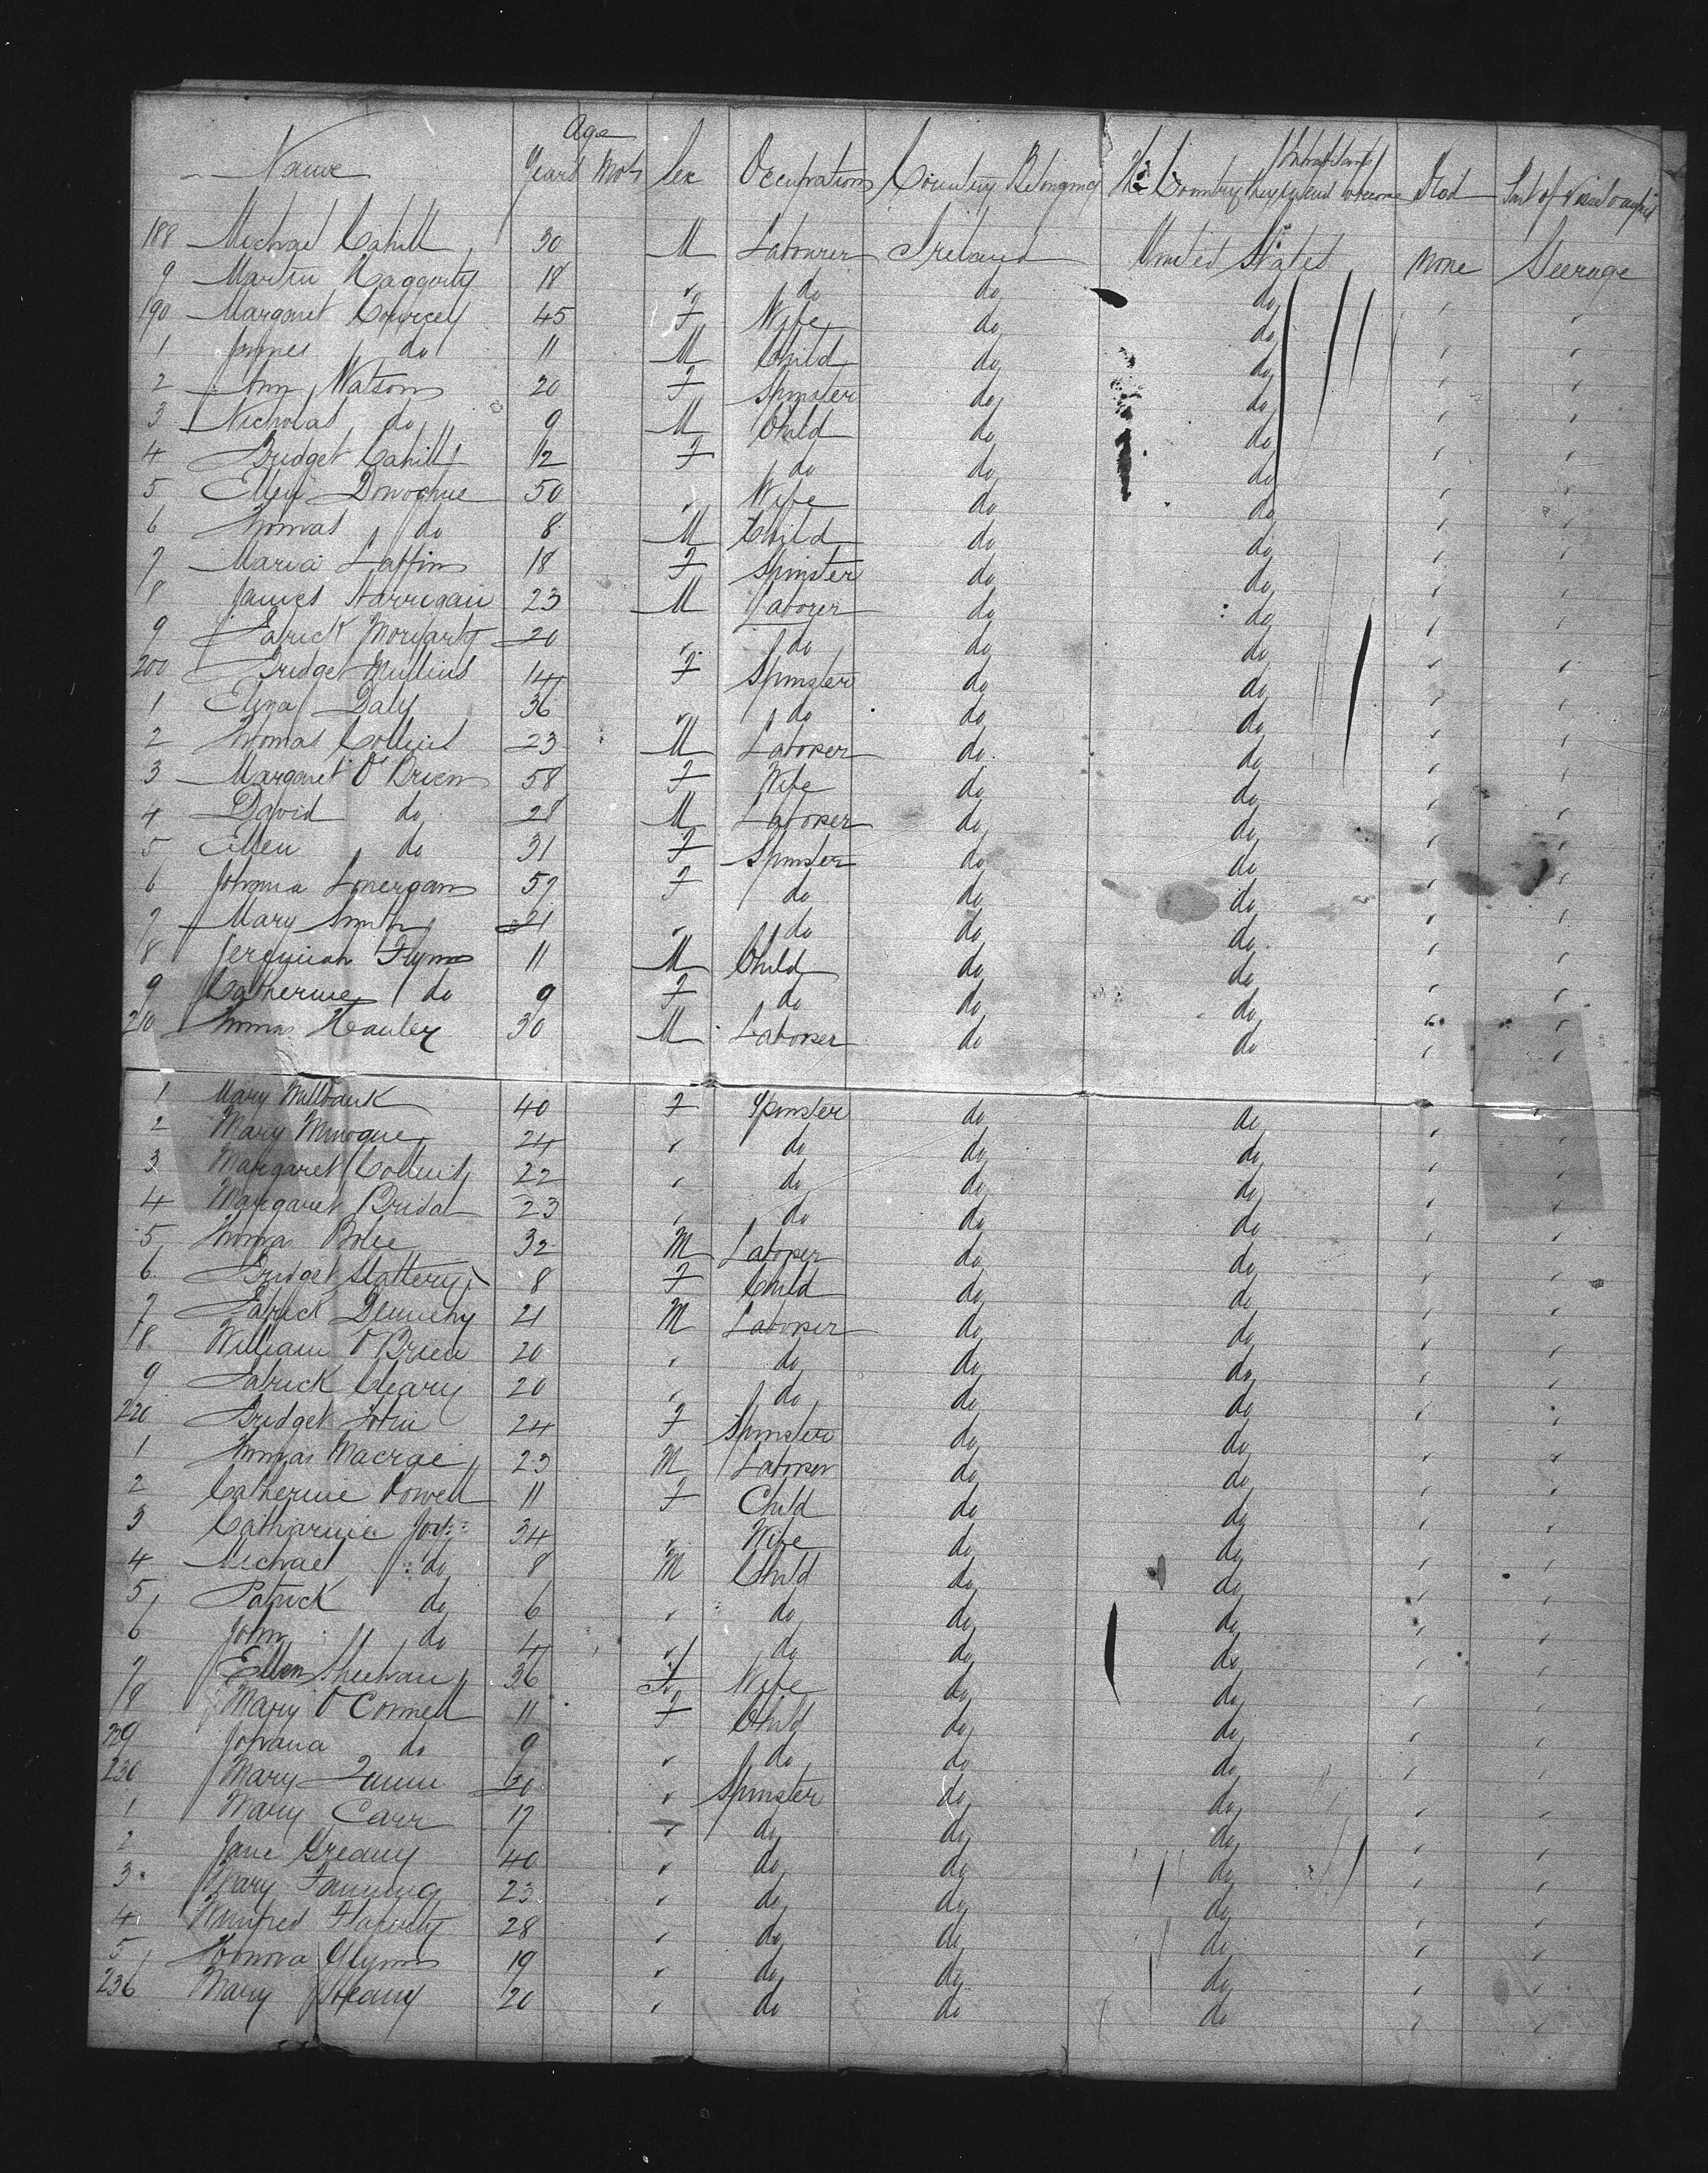 Age
Name Years Mos Sex Occupation Country Belonging The Country they intend to become Inhabitants Died Part of Vessel occupied
188 Michael Cahill 30 M Labourer Ireland United States None Steerage
9 Martin Haggerty 18 " do do do " "
190 Margaret Courcey 45 F Wife do do " "
1 James do 11 M Child do do " "
2 Ann Watson 20 F Spinster do do " "
3 Nicholas do 9 M Child do do " "
4 Bridget Cahill 12 F do do do " "
5 Ellen Donoghue 50 " Wife do do " "
6 Thomas do 8 M Child do do " "
7 Maria Laffin 18 F Spinster do do " "
8 James Harrigan 23 M Laborer do do " "
9 Patrick Moriarty 20 " do do do " "
200 Bridget Mullins 14 F Spinster do do " "
1 Eliza Daly 36 " do do do " "
2 Thomas Collins 23 M Laborer do do " "
3 Margaret O'Brien 58 F Wife do do " "
4 David do 28 M Laborer do do " "
5 Ellen do 31 F Spinster do do " "
6 Johana Lonergan 57 F do do do " "
7 Mary Smith 21 " do do do " "
8 Jeremiah Flynn 11 M Child do do " "
9 Catherine do 9 F do do do " "
210 Thomas Hanley 30 M Laborer do do " "
1 Mary Millbank 40 F Spinster do do " "
2 Mary Minogue 24 " do do do " "
3 Margaret Collins 22 " do do do " "
4 Margaret 23 " do do do " "
5 Thomas 32 M Laborer do do " "
6 Bridget Slattery 8 F Child do do " "
7 Patrick Dennehy 21 M Laborer do do " "
8 William O'Brien 20 " do do do " "
9 Patrick Cleary 20 " do do do " "
220 Bridget 24 F Spinster do do " "
1 Thomas Macrae 23 M Laborer do do " "
2 Catherine Powell 11 F Child do do " "
3 Catharine Joy 34 " Wife do do " "
4 Michael do 8 M Child do do " "
5 Patrick do 6 " do do do " "
6 John do 4 " do do do " "
7 Ellen Sheehan 36 F Wife do do " "
8 Mary O'Connell 11 F Child do do " "
229 Johana do 9 " do do do " "
230 Mary Quinn " Spinster do do " "
1 Mary Carr 17 " do do do " "
2 Jane Greany 40 " do do do " "
3 Mary Fanning 23 " do do do " "
4 Winifred Flaherty 28 " do do do " "
5 Honora Glynn 19 " do do do " "
236 Mary 20 " do do do " "